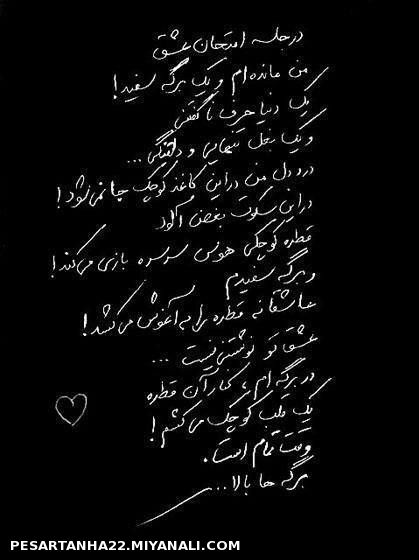 در جلسه امتحان عشق
من مانده‌ام و یک برگه سفید!
یک دنیا حرف ناگفتنی
و یک بغل تنهایی و دلتنگی...
درد دل من در این کاغذ کوچک جا نمی‌شود!
در این سکوت بغض آلود
قطره کوچکی هوس سرسره بازی می‌کند!
و برگه سفیدم
عاشقانه قطره را به آغوش می‌کشد!
عشق تو نوشتنی نیست ...
در برگه‌ام، کنار آن قطره
یک قلب کوچک می‌کشم!
وقت تمام است.
برگه ها بالا...
PESARTANHA22.MIYANALI.COM